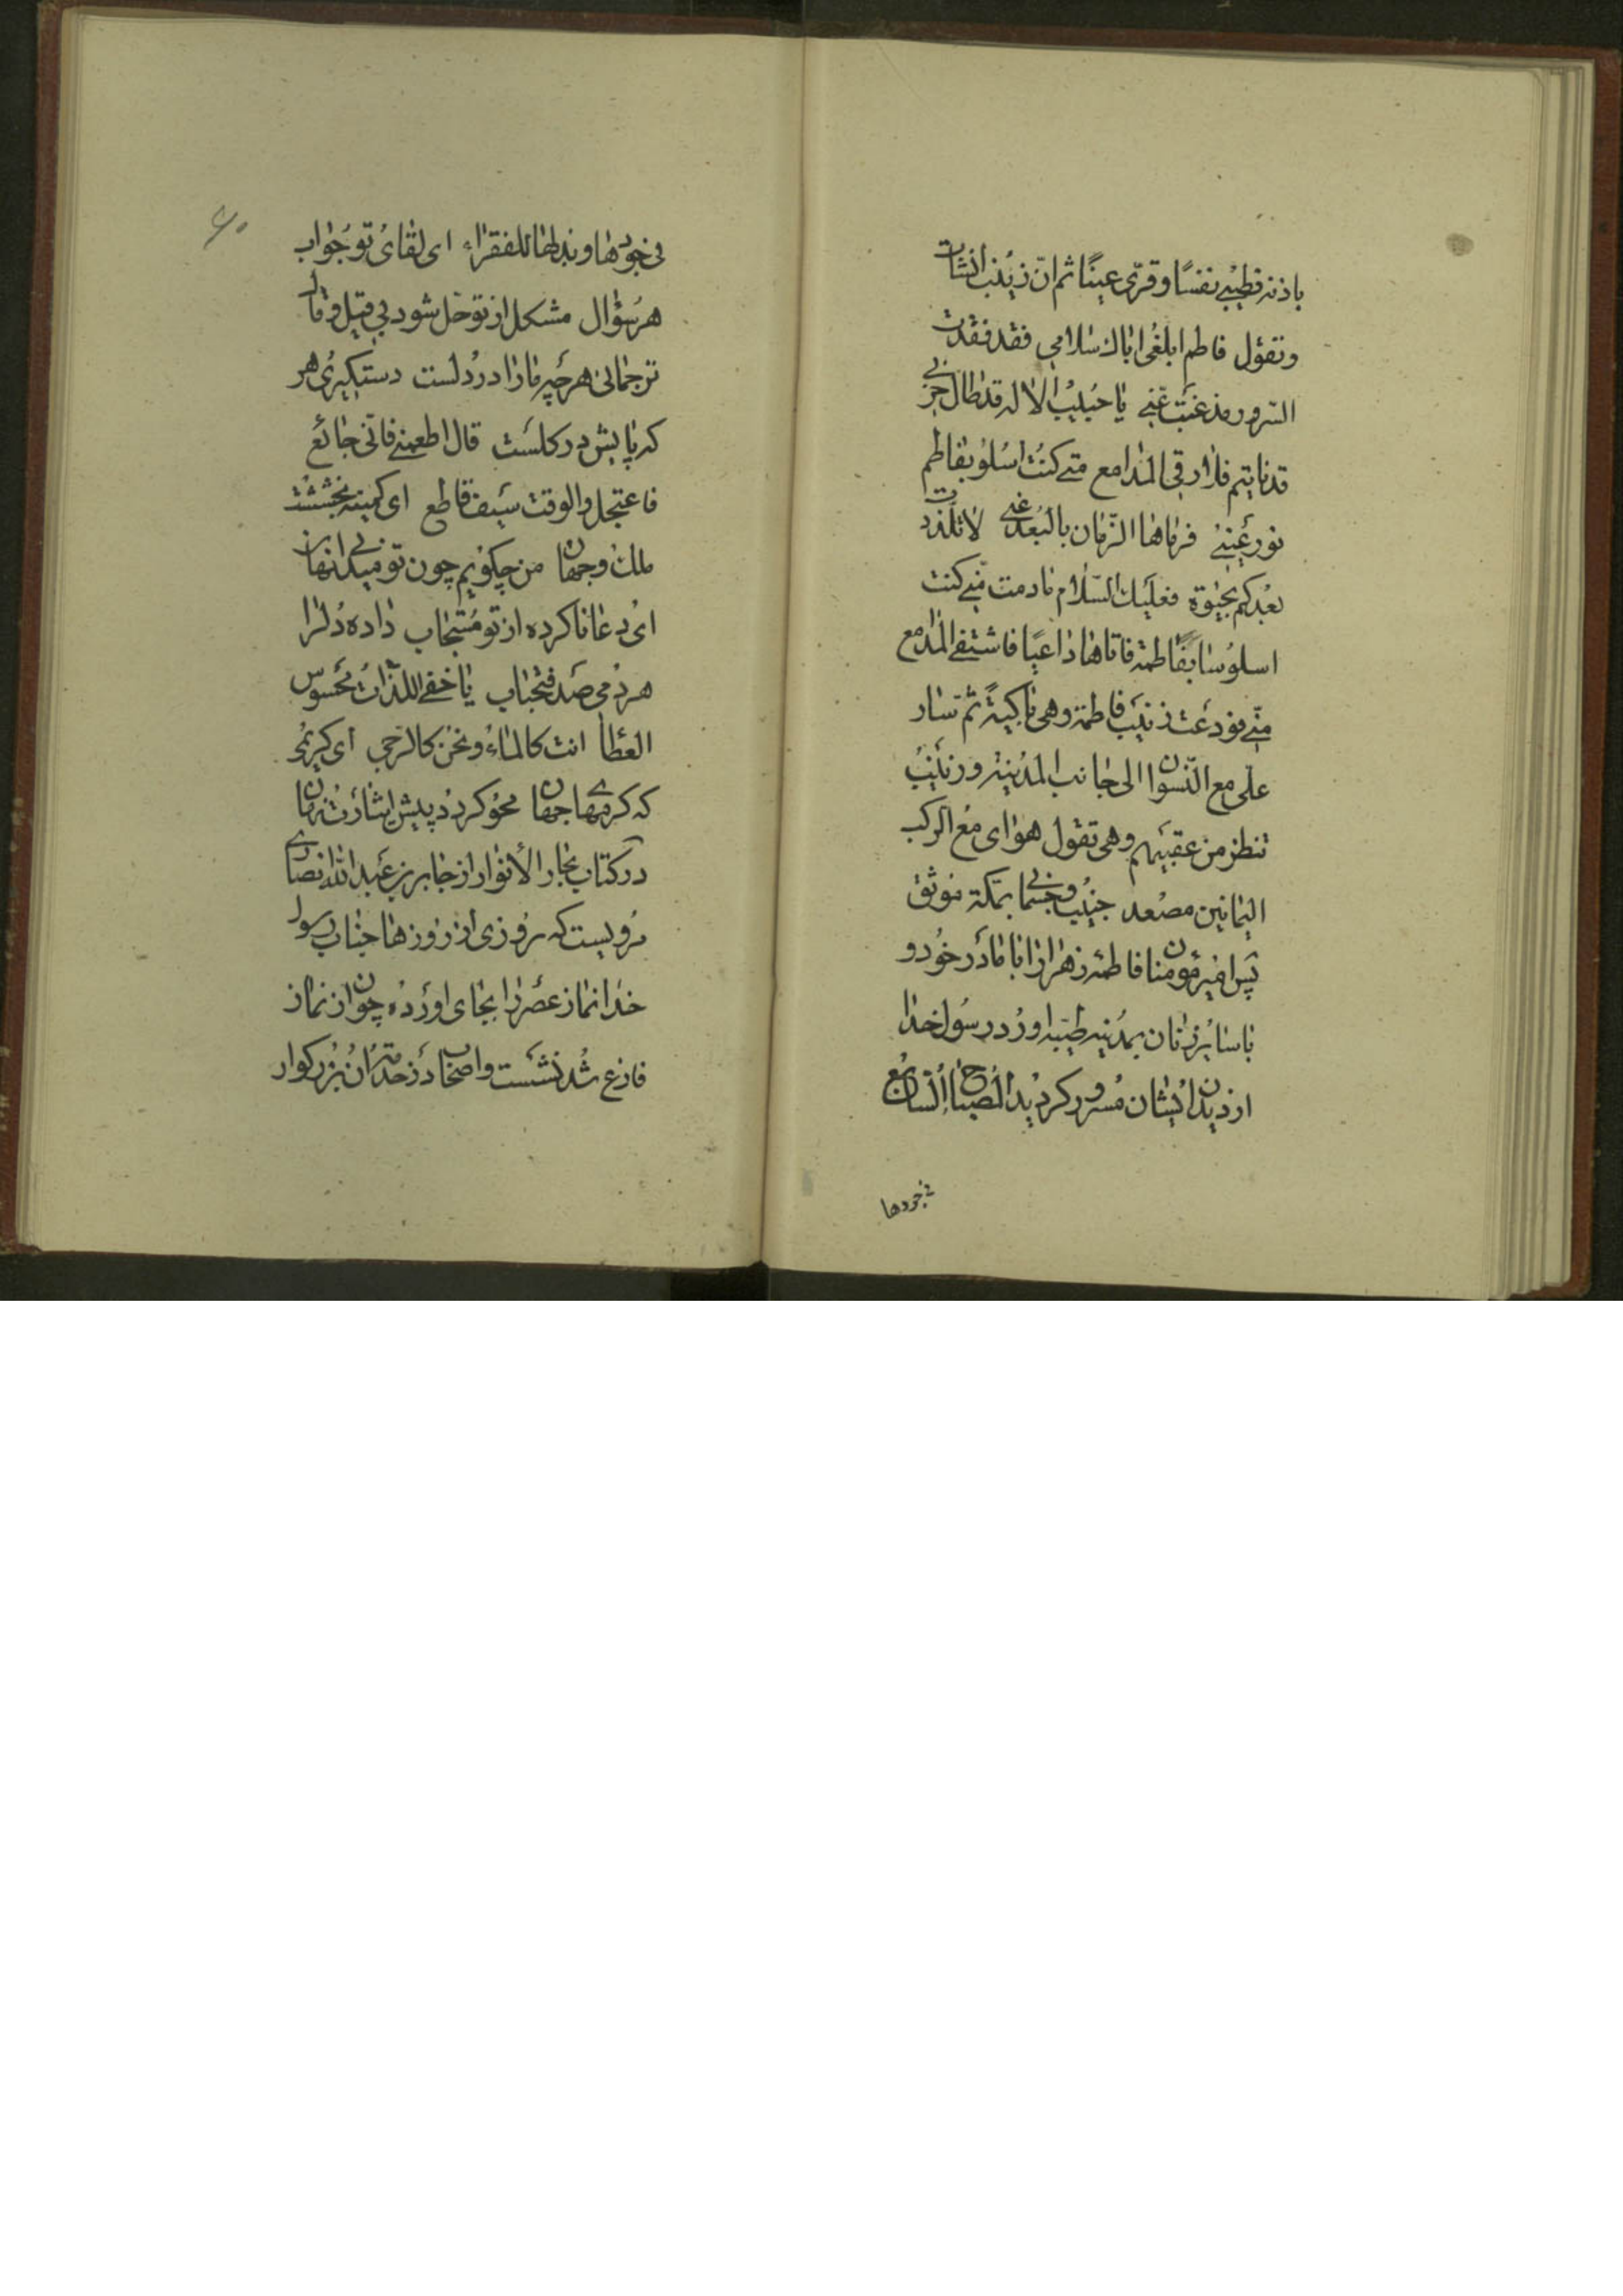 باذنه فطیبی نفسًا وقرّی عینًا ثم انّ زینب انشات
وتقول فاطم ابلغی اباك سلامي فقد فقدت
السّرور مذ غبت عنّی یا حبیب الاله قد طال حزنی
قد نایتم فلا رقی المدامع متی کنت اسلو بفاطم
نور عینی فرماها الزّمان بالبُعد عنّی لا تلذذت
بعدکم بحیٰوة فعلیك السّلام ما دمت منّی کنت
اسلو سابقا فاطمة فاتاها داعیًا فاشتفی المدامع
منّی فودعت زینب فاطمة وهی باکیة ثم سار
علی مع النّسوان الی جانب المدینه وزینب
تنظر من عقبهم وهی تقول هوای مع الرکب
الیمانین مصعد جنیب وجثمانی بمکة موثق
پس امیرمؤمنان فاطمه زهرا را با مادر خود و
با سایر زنان بمدینه طیبه اورد رسول خدا
از دیدن ایشان مسرور کردید المصباح السّابع
فی جودها
فی جودها وبذلها للفقراء ای لقای تو جواب
هر سؤال مشکل از تو حل شود بی قیل و قال
ترجمانی هر چه ما را در دلست دستکیری هر
که پایش در کلست قال اطعمنی فانّی جائع
فاعتجل والوقت سیف قاطع ای کمینه بخششت
ملك وجهان من چکویم چون تو میدانی نهان
ای دعا ناکرده از تو مستجاب داده دل را
هر دمی صد فتحباب یا خفیّ الذّات محسوس
العطا انت کالماء ونحن کالرّحی ای کریمی
که کرمهای جهان محو کردد پیش ایثارت نهان
در کتاب بحار الأنوار از جابر بن عبدالله انصاری
مرویست که روزی از روزها جناب رسول
خدا نماز عصر را بجای اورده چون از نماز
فارغ شد نشست واصحاب در خدمت ان بزرکوار
۶۰